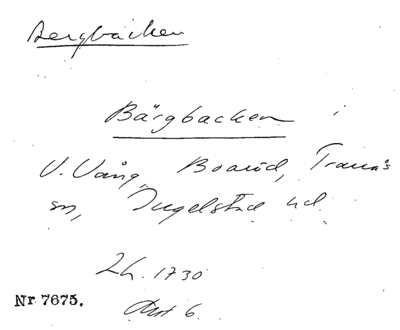 Bergbacken
Bärgbacken i
V. Vång, Boaröd, Tranås
sn, Ingelstad hd
Lh. 1730
Akt 6
Nr 7675.